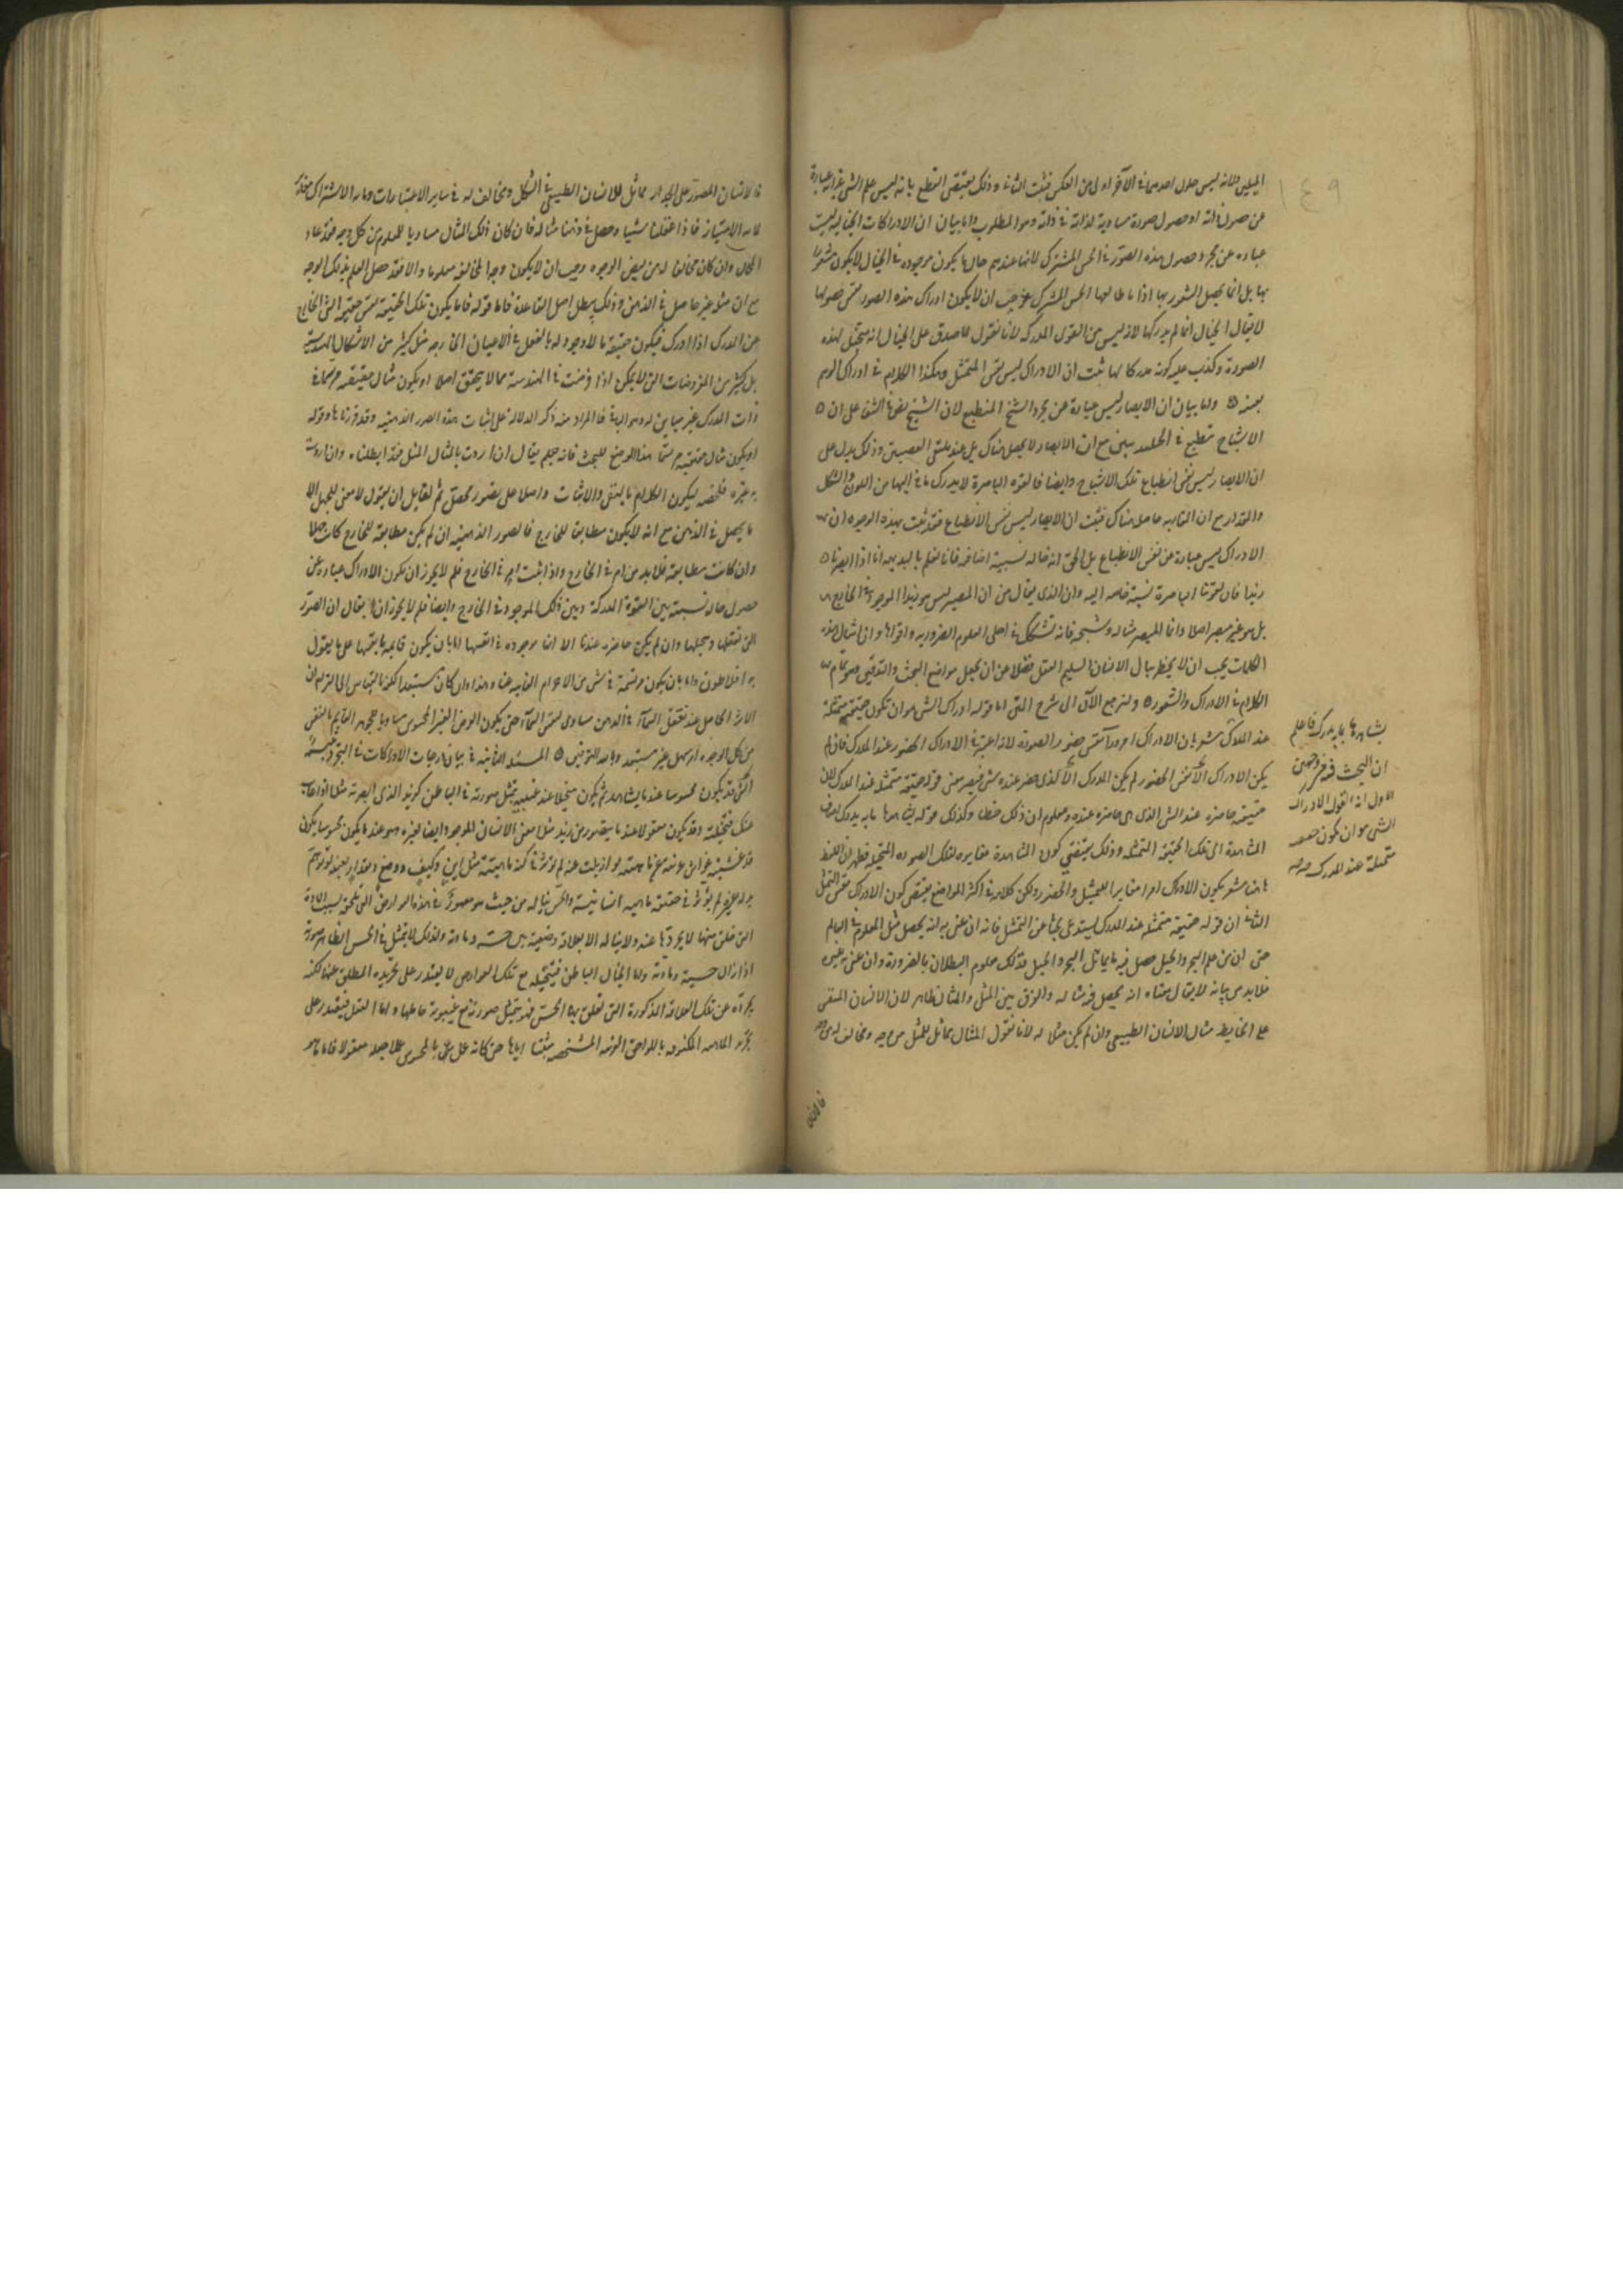 المثلين ولانه ليس حلول احدهما في الآخر اولى من العكس فثبت الثاني وذلك يقتضي القطع بانه ليس علم الشي بذاته عبارة
عن حصول ذاته او حصول صورة مساوية لذاته في ذاته وهو المطلوب واما بيان ان الادراكات الخيالية ليست
عبارة عن مجرد حصول هذه الصور في الحس المشترك لانها عندهم حال ما يكون موجودة في الخيال لا يكون مشعورا
بها بل انما يحصل الشعور بها اذا طالعها الحس المشترك فوجب ان لا يكون ادراك هذه الصور نفس حصولها
لا يقال الخيال انما لم يدركها لانه ليس من القوى المدركة لانا نقول لما صدق على الخيال انه متمثل لهذه
الصورة وكذب عليه كونه مدركا لها ثبت ان الادراك ليس نفس التمثل وهكذا الكلام في ادراك الوهم
بعينه واما بيان ان الابصار ليس عبارة عن مجرد الشبح المنطبع لان الشيخ نص في الشفا على ان
الاشباح تنطبع في الجليد مع ان الابصار لا يحصل هناك بل عند ملتقى العصبتين وذلك يدل على
ان الابصار ليس نفس انطباع تلك الاشباح وايضا فالقوة الباصرة لا يدرك ما في اليها من اللون والشكل
والمقدار مع ان حاصل هناك فثبت ان الابصار ليس نفس الانطباع فقد ثبت بهذه الوجوه ان
الادراك ليس عبارة عن نفس الانطباع بل الحق انه حالة نسبية اضافية فانا نعلم بالبديهة انا اذا ابصرنا
زيدا فان لقوتنا الباصرة نسبة خاصة اليه وان الذي يقال من ان المبصر ليس هو زيدا الموجود في الخارج
بل هو غير مبصر اصلا وانما المبصر مثاله وشبحه فانه تشكك في اجلى العلوم الضرورية واقواها وان امثال هذه
الكلمات يجب ان لا يخطر ببال الانسان السليم العقل فضلا عن ان يجعل مواضع البحث والتدقيق
الكلام في الادراك والشعور ولنرجع الآن الى شرح المتن اما قوله ادراك الشي هو ان تكون حقيقته متمثلة
عند المدرك مشعر بان الادراك امر ورا نفس حضور الصورة لانه اعتبر في الادراك الحضور عند المدرك فان لم
يكن الادراك الا نفس الحضور لم يكن المدرك الا الذي حضر عنده شي فيصير معنى قوله حقيقته متمثلة عند المدرك ان
حقيقته حاضرة عند الشي الذي هي حاضرة عنده ومعلوم ان ذلك خطا وكذلك قوله يشاهدها ما به يدرك
المشاهدة الى تلك الحقيقة المتمثلة وذلك يقتضي كون المشاهدة مغايرة لتلك الصورة المتخيلة فظهر ان اللفظ
هاهنا مشعر بكون الادراك امرا مغايرا للتمثل والحضور ولكن كلامه في اكثر المواضع يقتضي كون الادراك نفس التمثل
الثاني ان قوله حقيقته متمثلة عند المدرك يستدعي بحثا عن التمثل فانه ان عنى به انه يحصل مثل المعلوم في العالم
حتى ان من علم البحر والجبل حصل فيه ما يماثل البحر والجبل فذلك معلوم البطلان بالضرورة وان عنى به غيره
فلا بد من بيانه لا يقال معناه انه يحصل فيه مثاله والفرق بين المثل والمثال ظاهر لان الانسان المنقش
على الحايط مثال الانسان الطبيعي وان لم يكن مثلا له لانا نقول المثال مماثل للمثل من وجه ومخالف له من وجه
فالانسان
يشاهدها ما به يدرك فاعلم
ان البحث فيه من وجهين
الاول ان القول الادراك
الشي هو ان تكون حقيقته
متمثلة عند المدرك
١٤٩
فالانسان المصور على الجدار مماثل للانسان الطبيعي في الشكل ومخالف له في ساير الاعتبارات وما به الاشتراك مغاير
لما به الامتياز فاذا عقلنا شيئا وحصل في ذهننا مثاله فان كان ذلك المثال مساويا للمعلوم من كل وجه فقد عاد
المحال وان كان مخالفا له من بعض الوجوه وجب ان لا يكون وجه المخالفة معلوما والا فقد حصل العلم بذلك الوجه
مع ان مثله غير حاصل في الذهن وذلك يبطل اصل القاعدة فاما قوله فاما يكون تلك الحقيقة نفس حقيقة الشي الخارج
عن المدرك اذا ادرك فيكون حقيقة ما لا وجود له بالفعل في الاعيان الخارجة مثل كثير من الاشكال الهندسية
بل كثير من المفروضات التي لا يمكن اذا فرضت في الهندسة مما لا يتحقق اصلا او يكون مثال حقيقته مرتسما في
ذات المدرك غير مباين له وهو الباقي فالمراد منه ذكر الدلالة على اثبات هذه الصور الذهنية وقد قررناها وقوله
او يكون مثال حقيقته مرتسما هذا الوضع للبحث فانه يقال ان اردت بالمثال المثل فقد ابطلناه وان اردت
به غيره فلخصه ليكون الكلام بالنفي والاثبات واصلا على تصور محصل ثم لقايل ان يقول لا معنى للجهل الا
ما يحصل في الذهن مع انه لا يكون مطابقا للخارج فالصور الذهنية ان لم يكن مطابقة للخارج كانت جهلا
وان كانت مطابقة فلا بد من امر في الخارج واذا ثبت امر في الخارج فلم لا يجوز ان يكون الادراك عبارة عن
حصول حالة نسبية بين القوة المدركة وبين ذلك الموجود في الخارج وايضا فلم لا يجوز ان يقال ان الصور
التي نتعقلها ونتخيلها وان لم يكن حاضرة عندنا الا انها موجودة في انفسها اما بان يكون قايمة بانفسها على ما يقول
به افلاطون واما بان يكون مرتسمة في شي من الاجرام الغايبة عنا وهذا وان كان مستبعدا لكنه بالقياس الى التزام ان
الاثر الحاصل عند تعقل السمآء في الذهن مساوي لنفس السمآء حتى يكون العرض الغير المحسوس مساويا للجوهر القايم بالنفس
من كل الوجوه امر سهل غير مستبعد وبالله التوفيق المسئلة الثانية في بيان درجات الادراكات في التجرد تنبيه
الشي قد يكون محسوسا عندما يشاهد ثم يكون متخيلا عند غيبته بتمثل صورته في الباطن كزيد الذي ابصرته مثلا اذا غاب
عنك فتخيلته وقد يكون معقولا عندما يتصور من زيد مثلا معنى الانسان الموجود ايضا لغيره وهو عندما يكون محسوسا يكون
قد غشيته غواش غريبة عن ماهيته لو ازيلت عنه لم تؤثر في كنه ماهيته مثل اين وكيف ووضع ومقدار بعينه لو توهم
بدله غيره لم يؤثر في حقيقة ماهية انسانيته والحس يناله من حيث هو مغمور في هذه العوارض التي تلحقه بسبب المادة
التي خلق منها لا يجردها عنه ولا يناله الا بعلاقة وضعية بين حسه ومادته ولذلك لا يتمثل في الحس الظاهر صورته
اذا زال واما الخيال الباطن فيتخيله مع تلك العوارض لا يقتدر على تجريده المطلق عنها لكنه
يجرده عن تلك العلاقة المذكورة التي تعلق بها الحس فهو يتمثل صورته مع غيبوبة حاملها واما العقل فيقتدر على
تجريد الماهية المكنوفة باللواحق الغريبة المشخصة مثبتا اياها حتى كانه عمل بالمحسوس عملا جعله معقولا فاما ما هو